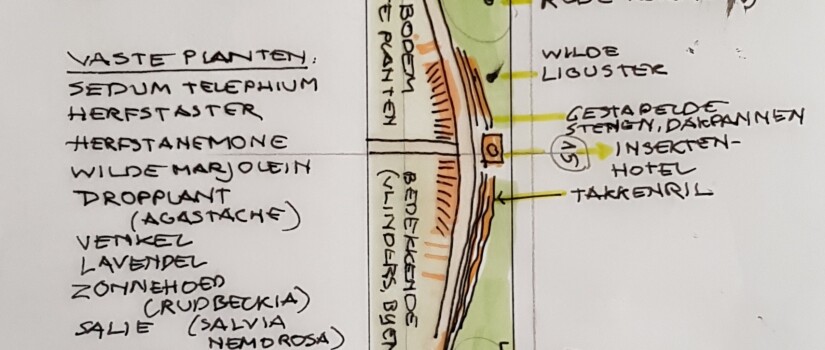 VASTE PLANTEN:
SEDUM TELEPHIUM
HERFSTASTER
HERFSTANEMONE
WILDE MARJOLEIN
DROPPLANT
(AGASTACHE)
VENKEL
LAVENDEL
ZONNEHOED
(RUDBECKIA)
SALIE (SALVIA
NEMOROSA)
BODEM
BEDEKKENDE
E PLANTEN
(VLINDERS, BIJEN
WILDE
LIGUSTER
GESTAPELDE
STENEN, DAKPANNEN
15
INSEKTEN-
HOTEL
TAKKENRIL